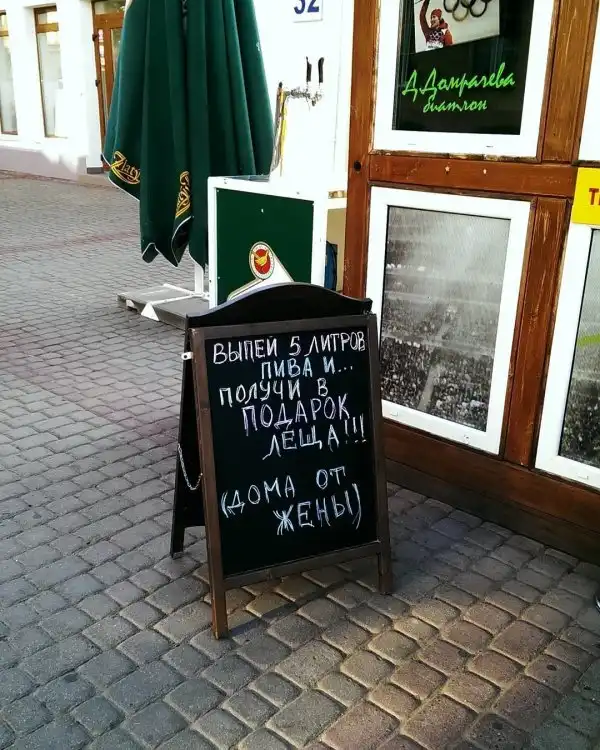 32
Д.Домрачева
биатлон
Zlaty
ВЫПЕЙ 5 ЛИТРОВ
ПИВА И...
ПОЛУЧИ В
ПОДАРОК
ЛЕЩА!!!
(ДОМА ОТ
ЖЕНЫ)